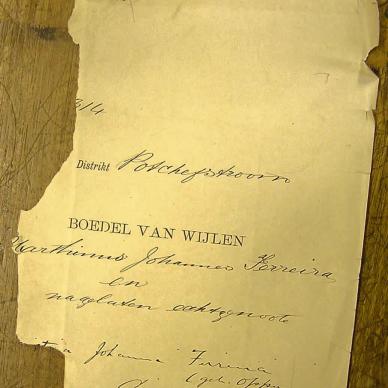 3/4
Distrikt Potchefstroom
BOEDEL VAN WIJLEN
Marthinus Johannes Ferreira
en
nagelaten echtgenoote
Johanna Ferreira
(geb. Opper